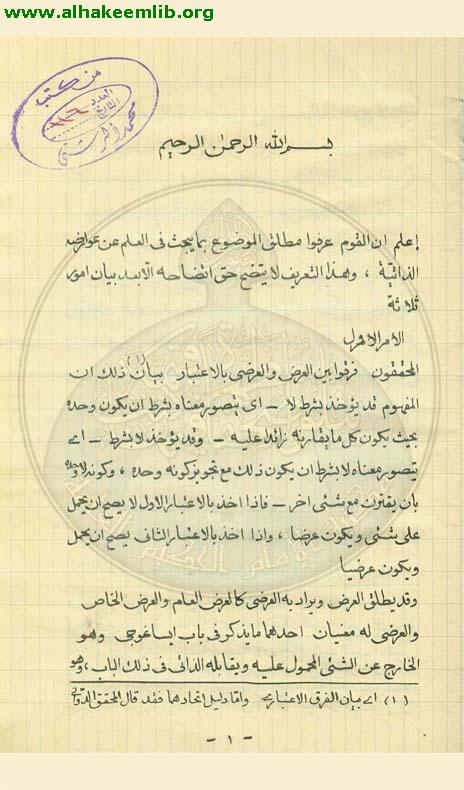 www.alhakeemlib.org
من كتب
العدد
التاريخ
بسم الله الرحمن الرحيم
إعلم ان القوم عرفوا مطلق الموضوع بما يبحث فى العلم عن عوارضه
الذاتيّة ، وهذا التعريف لا يتضح حق اتضاحه الا بعد بيان امور
ثلاثة
الامر الاول
المحققون فرّقوا بين العرض والعرضى بالاعتبار بيان (١) ذلك ان
المفهوم قد يؤخذ بشرط لا – اى يتصور معناه بشرط ان يكون وحده
بحيث يكون كل ما يقارنه زائدا عليه – وقد يؤخذ لا بشرط – اى
يتصور معناه لا بشرط ان يكون ذلك مع تجويز كونه وحده ، وكونه لا وحده
بان يقترن مع شئى اخر – فاذا اخذ بالاعتبار الاول لا يصح ان يحمل
على شئى ويكون عرضا ، واذا اخذ بالاعتبار الثانى يصح ان يحمل
ويكون عرضيا
وقد يطلق العرض ويراد به العرضى كالعرض العام والعرض الخاص
والعرضى له معنيان احدهما ما يذكر فى باب ايساغوجى وهو
الخارج عن الشئى المحمول عليه ويقابله الذاتى فى ذلك الباب ، وهو
(١) اى بيان الفرق الاعتبارى واما دليل اتحادهما فقد قال المحقق الدوانى
- ١ -